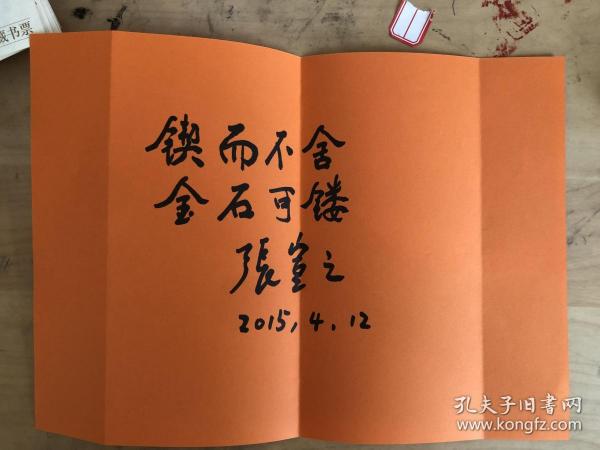 锲而不舍
金石可镂
張豈之
2015,4,12
藏书票
孔夫子旧书网
www.kongfz.com